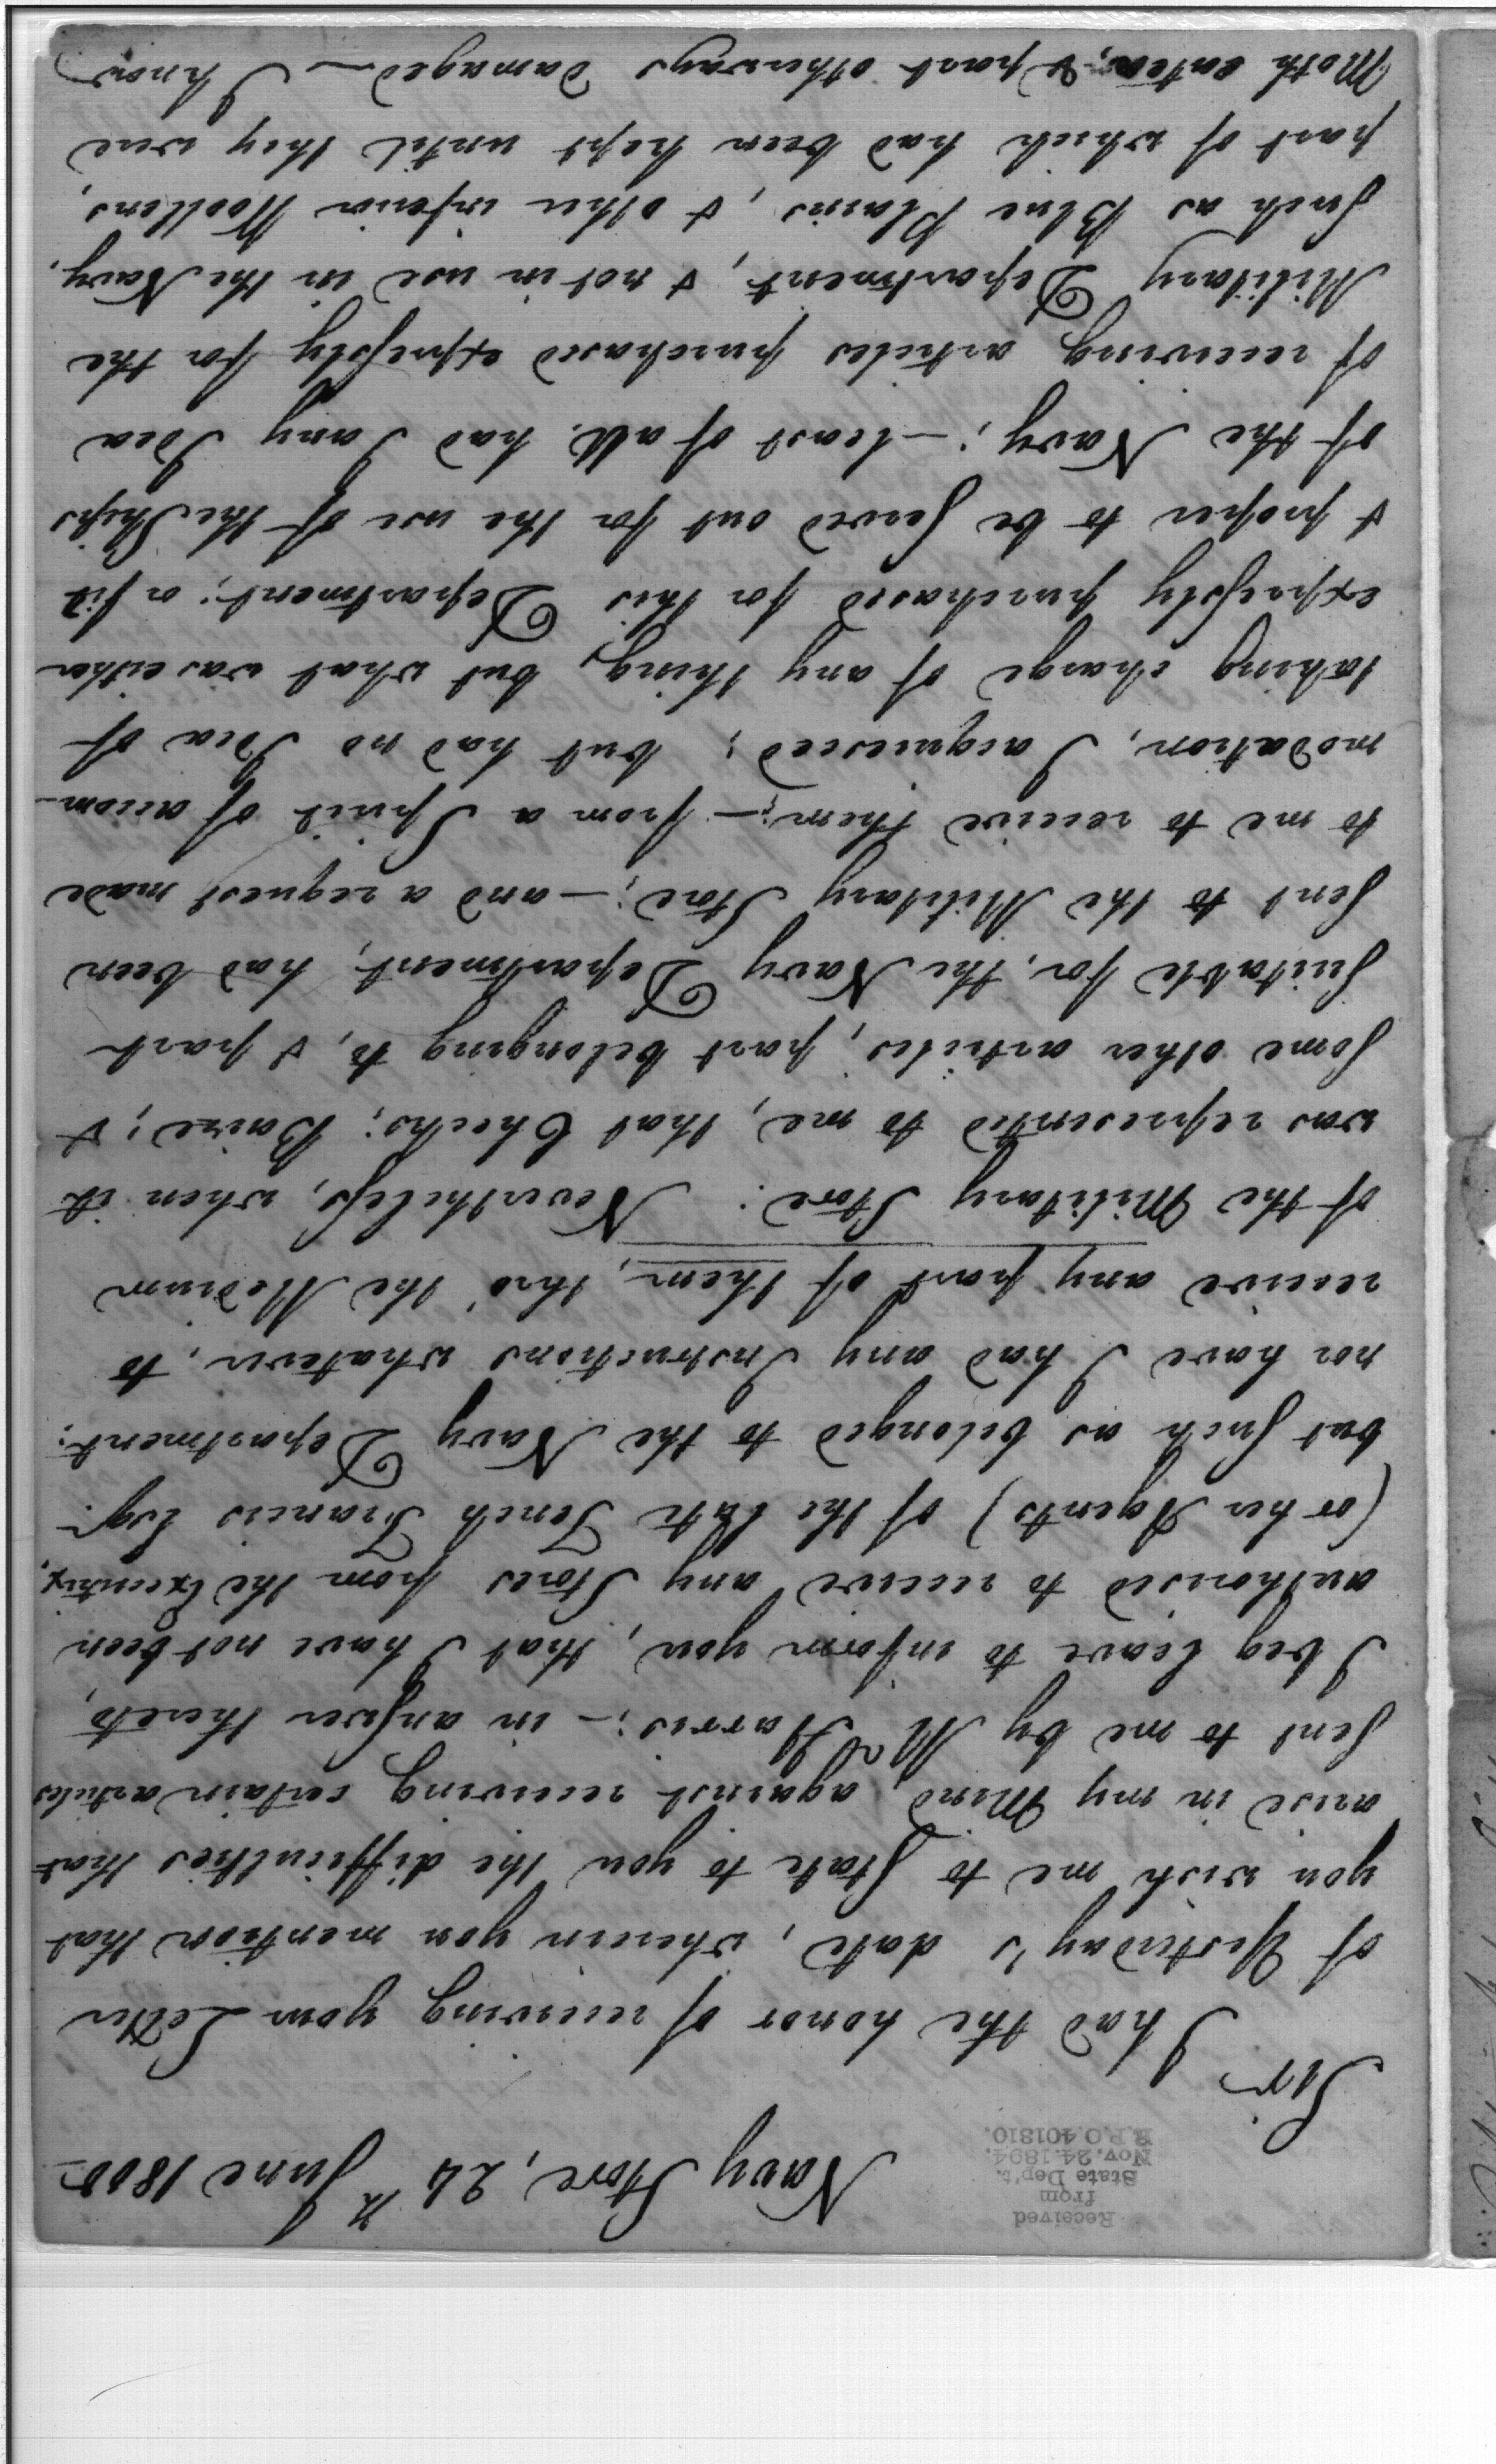 Received
from
State Dep't.
Nov. 24. 1894.
R.P.O. 401810.
Navy Store, 24th June 1800
Sir
I had the honor of receiving your Letter
of Yesterday's date, wherein you mention that
you wish me to state to you the difficulties that
arise in my Mind, against receiving certain articles
sent to me by Mr Harris; — in answer thereto,
I beg leave to inform you, that I have not been
authorised to receive any Stores from the Executrix,
(or her Agents) of the late Tench Francis Esqr.
but such as belonged to the Navy Department;
nor have I had any Instructions whatever, to
receive any part of them, thro' the Medium
of the Military Store. Nevertheless, when it
was represented to me, that Checks; Baize; &
some other articles, part belonging to, & part
suitable for, the Navy Department, had been
sent to the Military Store; — and a request made
to me to receive them; — from a Spirit of accom-
modation, I acquiesced; but had no Idea of
taking charge of any thing, but what was either
expressly purchased for this Department; or fit
& proper to be served out for the use of the Ships
of the Navy; — least of all, had I any Idea
of receiving articles purchased expressly for the
Military Department, & not in use in the Navy,
such as Blue Plains, & other inferior Woollens,
part of which had been kept until they were
Moth eaten, & part otherways damaged — I know